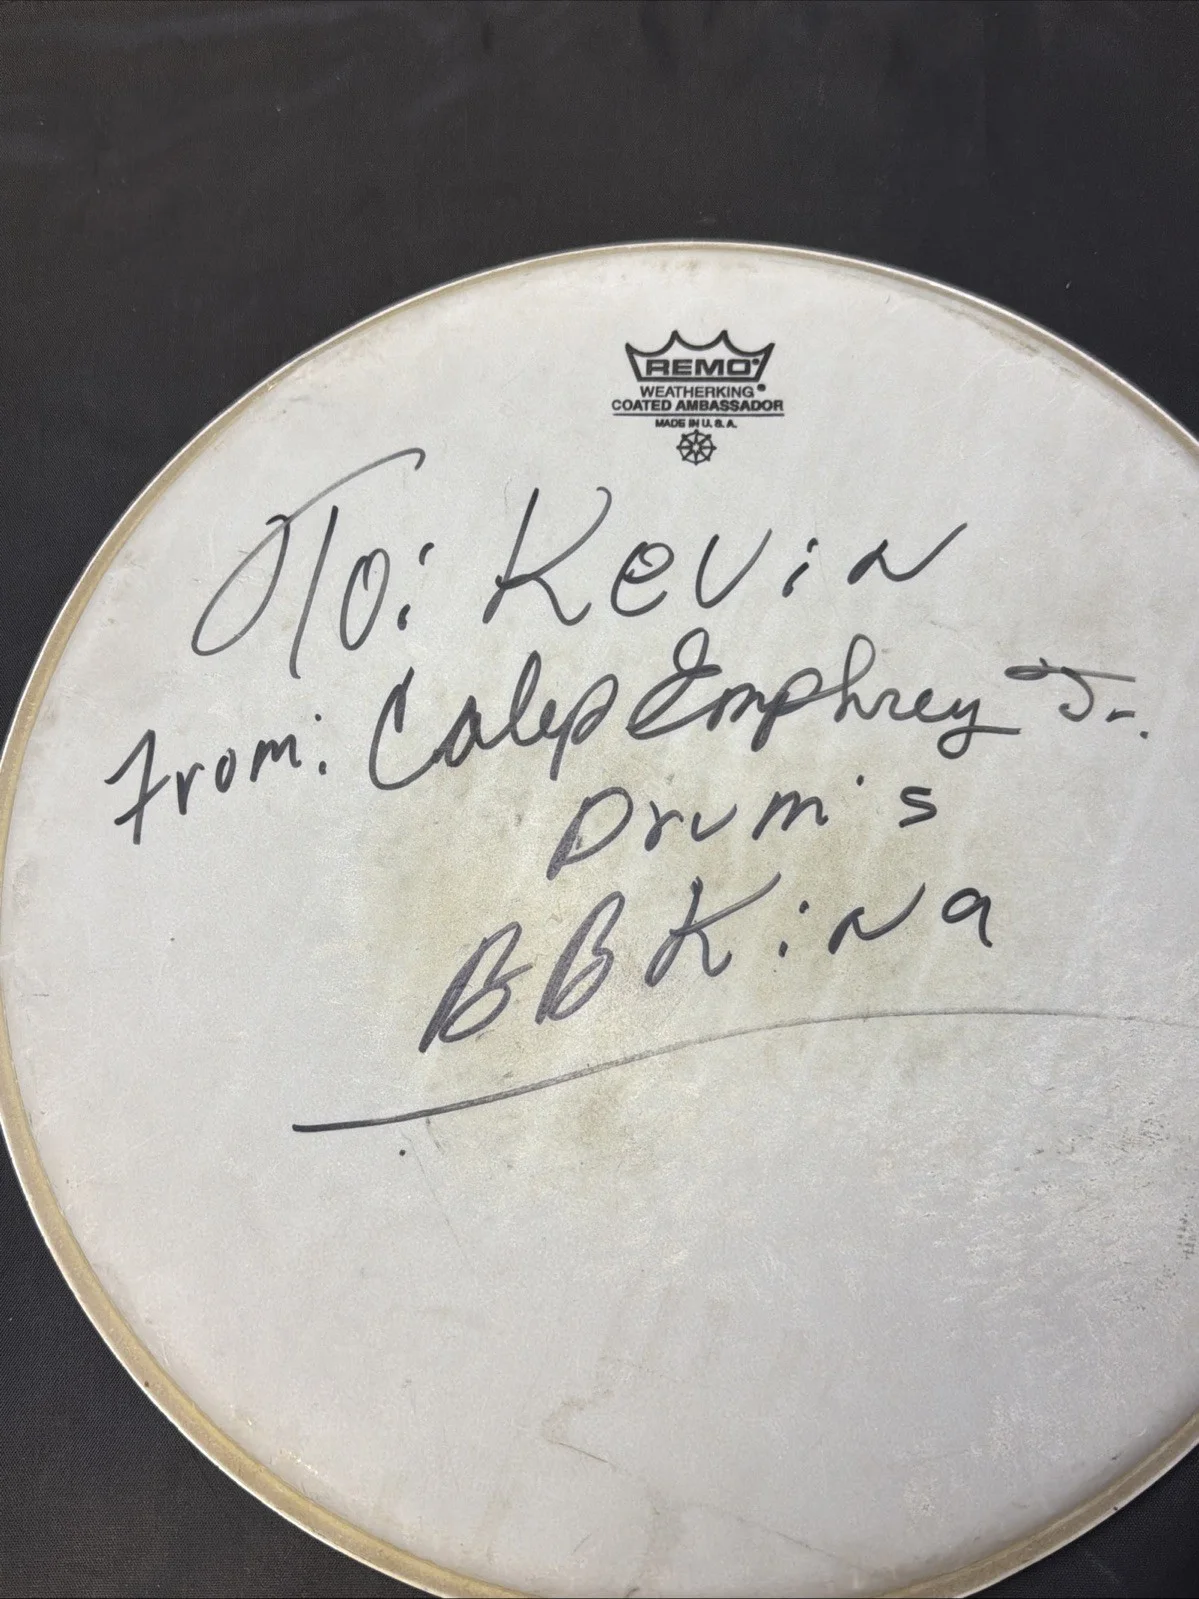 REMO
WEATHERKING®
COATED AMBASSADOR
MADE IN U.S.A.
To: Kevin
From: Calep Emphrey Jr.
Drum's
BB King